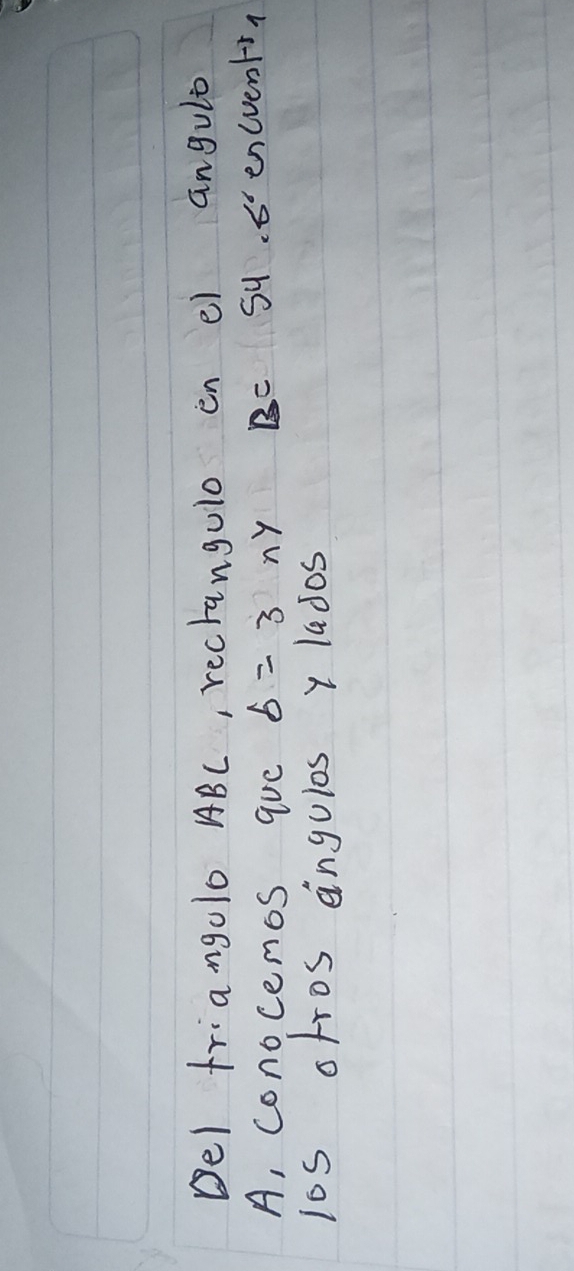 Del triangulo ABC, rectangulo en el angulo
A, conocemos que b = 3 n y B= 54.6° encuentra
los otros ángulos y lados